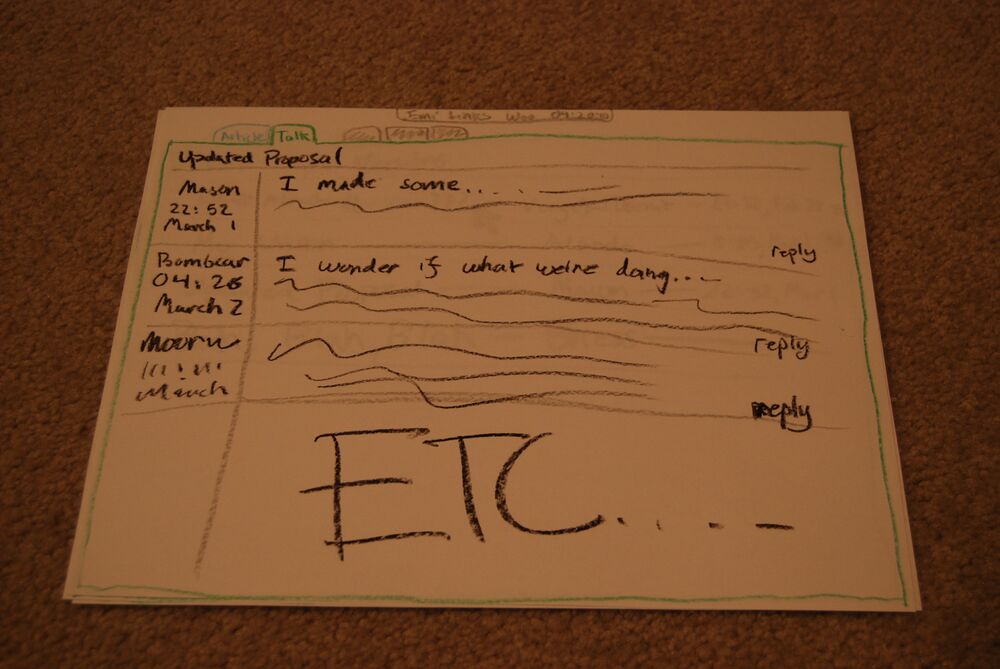 Article Talk
Updated Proposal
Mason
22:52
March 1
I made some....
reply
Bombear
04:26
March 2
I wonder if what we're doing....
reply
March
reply
ETC.....